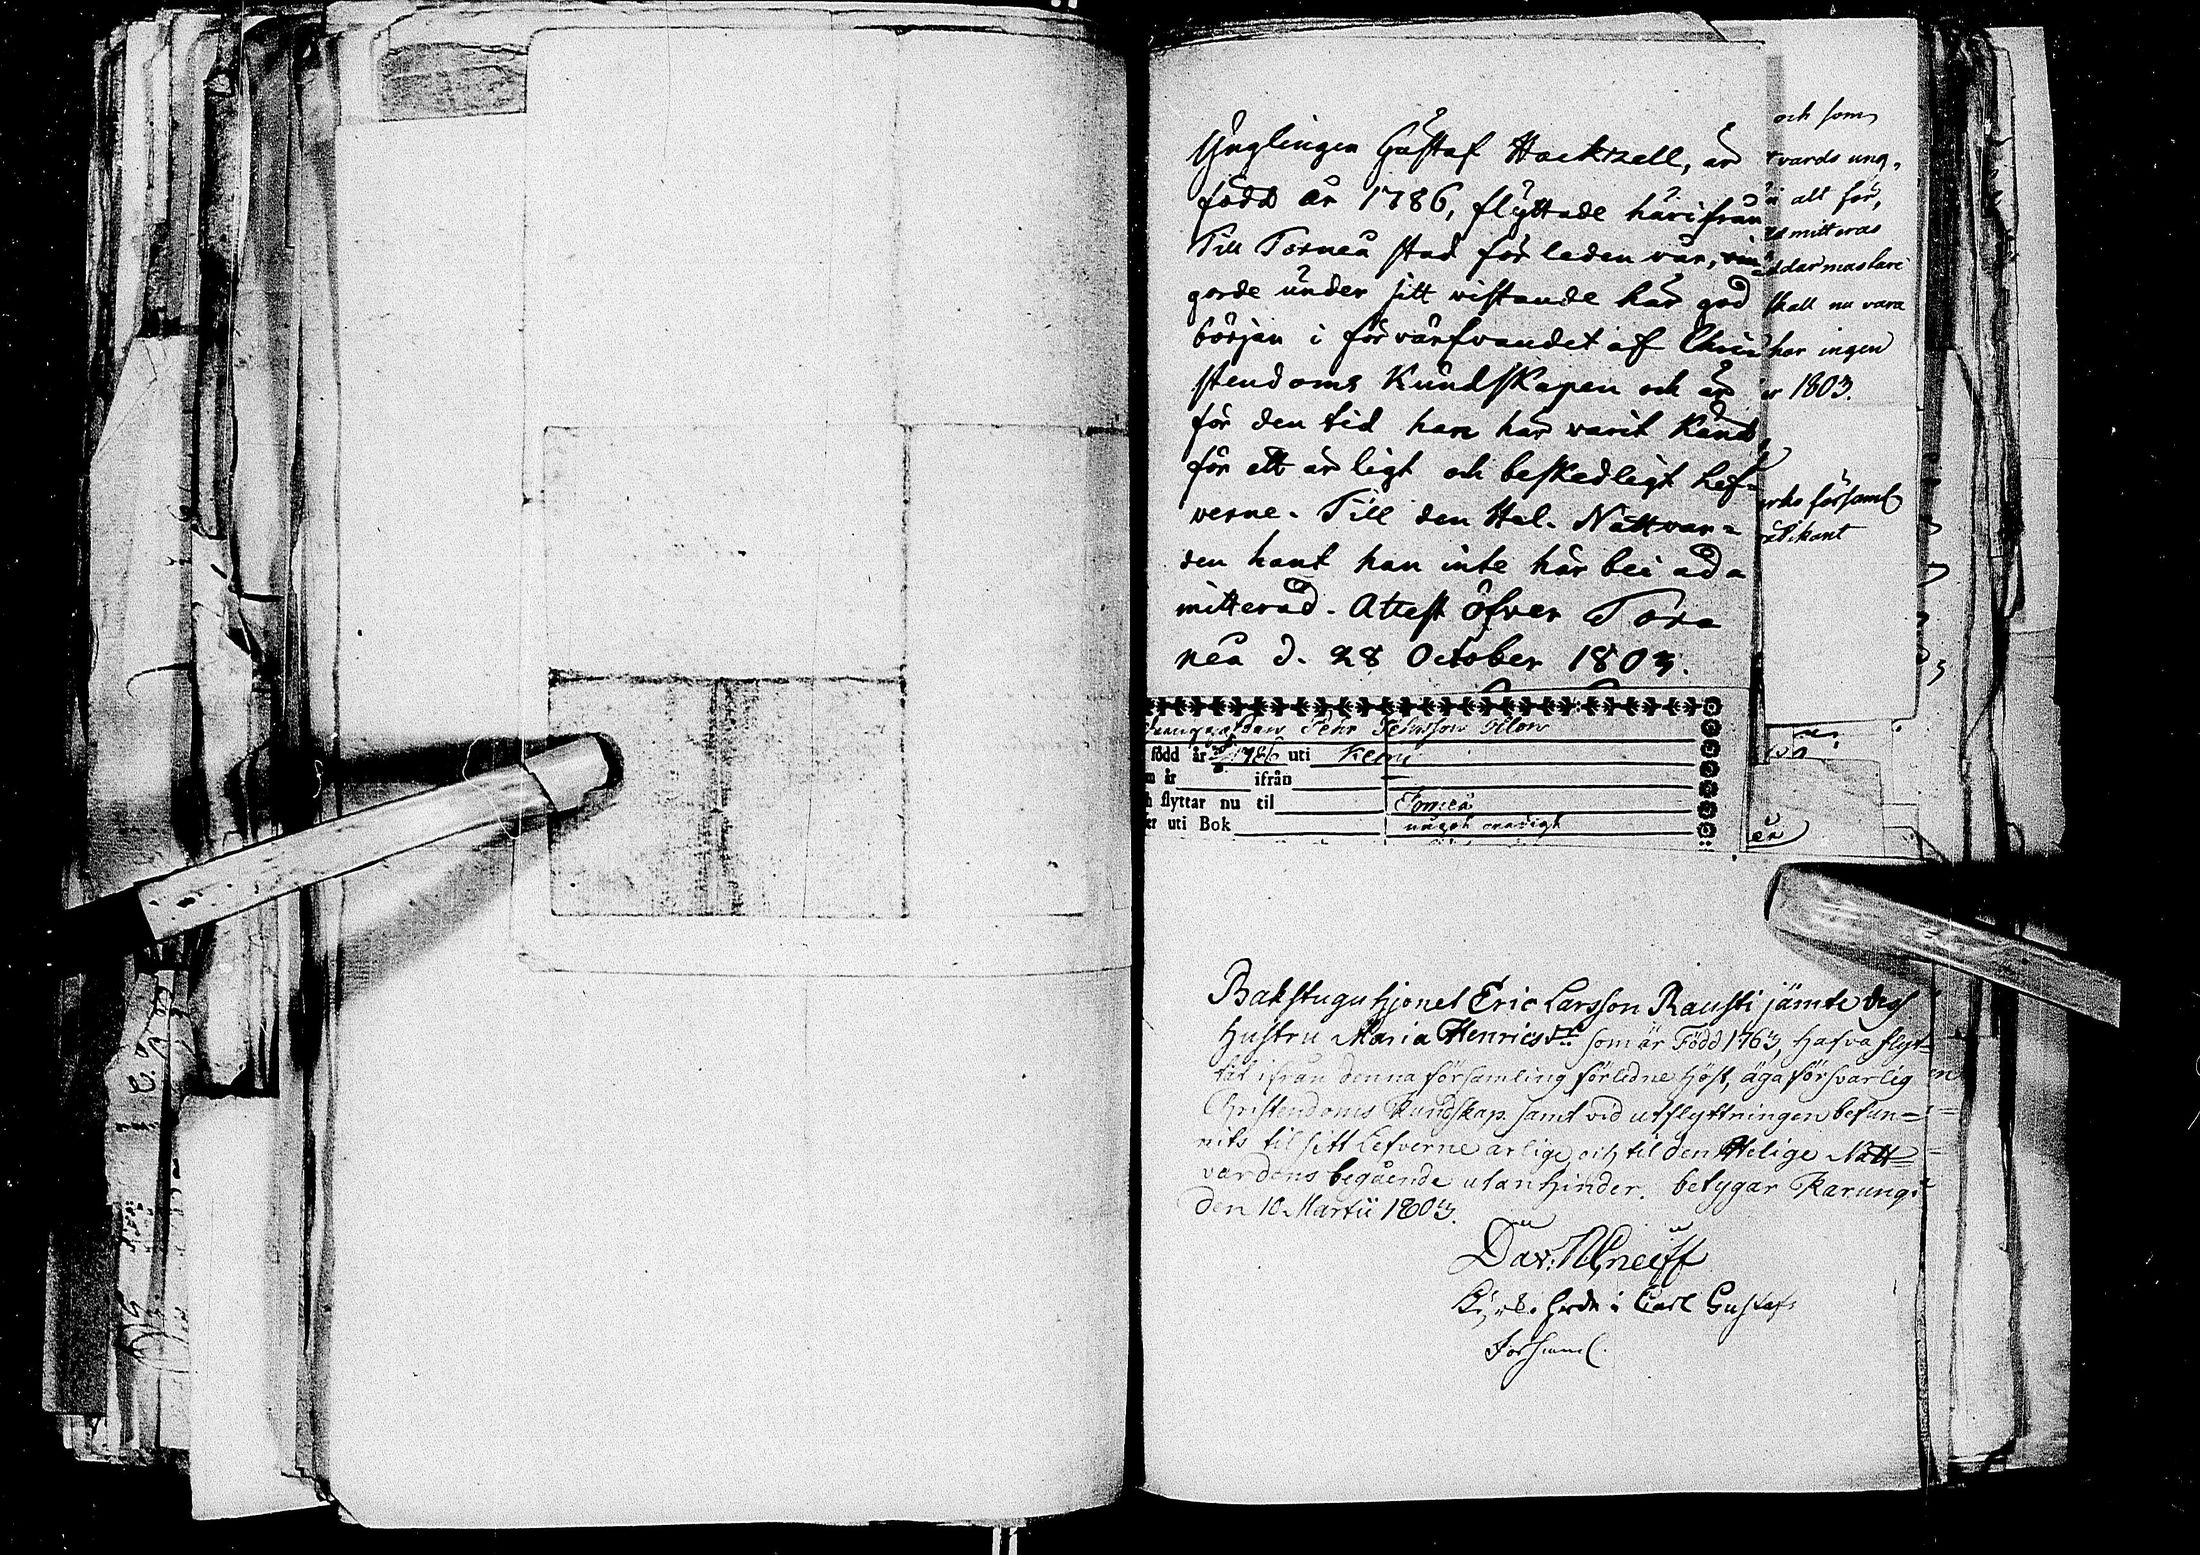 Ynglingen Gustaf Hackzell, är
född år 1786, flyttade härifrån
Till Torneå stad förleden vår,
gorde under sitt vistande här god
början i förvärfvandet af Chri
stendoms Kundskapen och är
för den tid han här warit känd,
för ett ärligt och beskedligt lef=
verne. Till den Hel. Nattvar=
den hant han inte här bli ad=
mitterad. Attest Öfver Tor=
neå d. 28 October 1803.
och som
vards ung,
alt för,
mitteras
skall nu vara
har ingen
1803.
församl
Pehr Pehrsson
född år 1786 uti Kemi
år ifrån
flyttar nu til Torneå
uti Bok
Bakstuguhjonet Eric Larsson Rausti jämte dess
hustru Maria Henricsdr som är Född 1763, hafva flyt=
tat ifrån denna församling förledne höst, äga försvarlig
Christendoms Kundskap samt vid utflyttningen befun=
nits til sitt Lefverne ärlige och til den Helige Natt=
vardens begående utan hinder. betygar Karungi
den 10 Martii 1803.
Dav.
i Carl Gustafs
Församl.